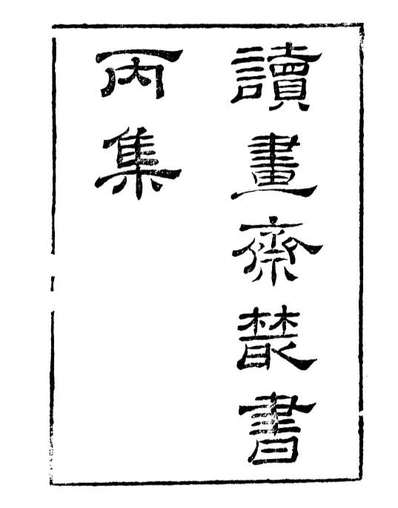 讀畫齋叢書
丙集